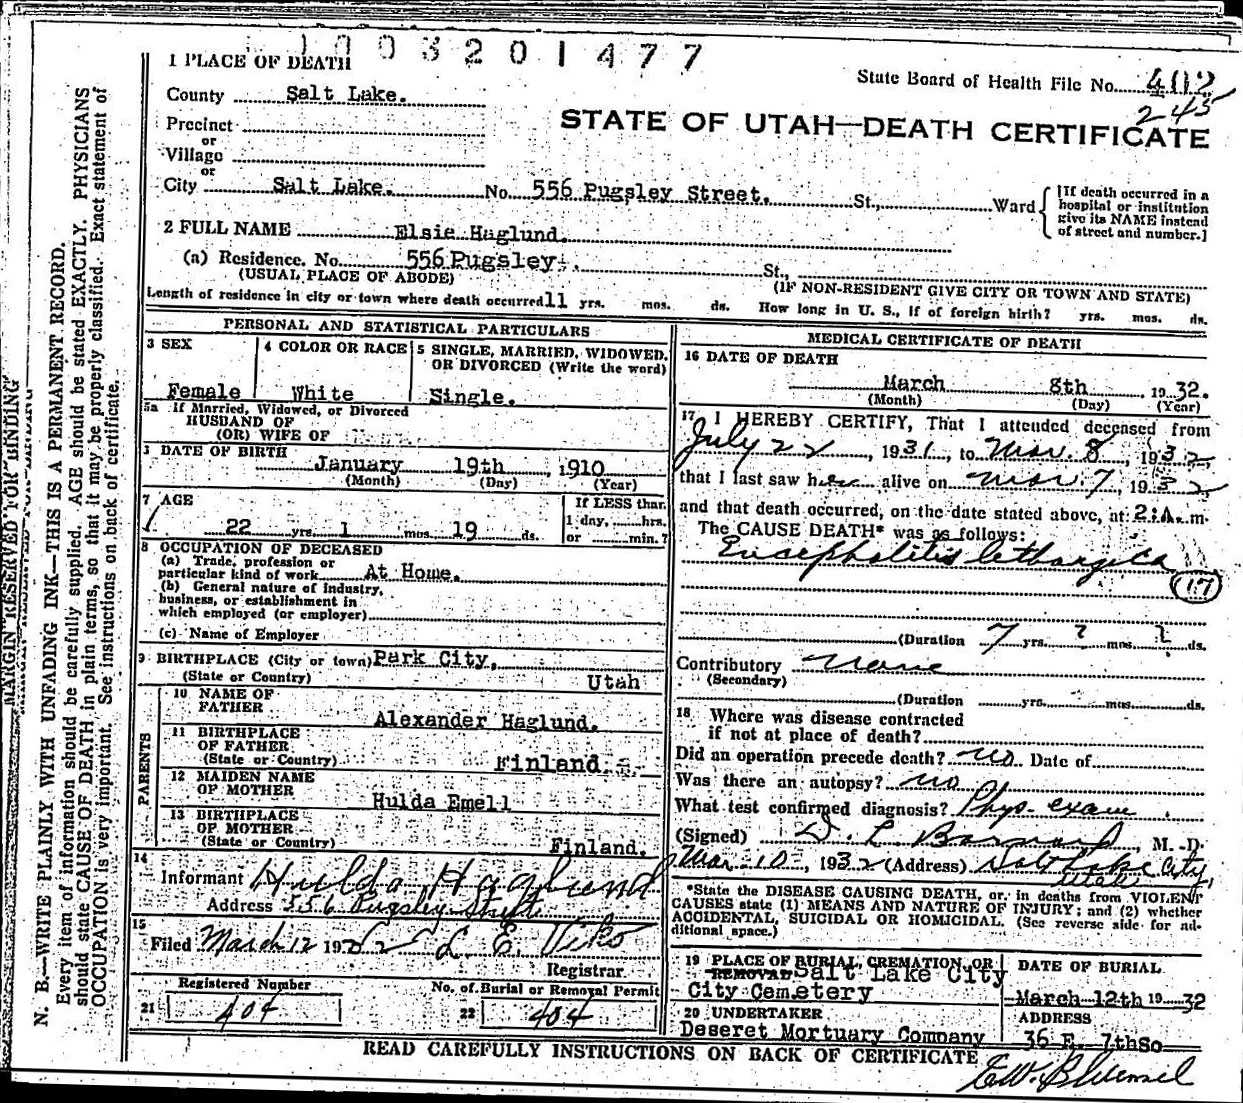 1003201477
1 PLACE OF DEATH
State Board of Health File No. 402
245
County Salt Lake.
STATE OF UTAH—DEATH CERTIFICATE
Precinct
or
Village
or
City Salt Lake. No. 556 Pugsley Street. St., Ward
[If death occurred in a
hospital or institution
give its NAME instead
of street and number.]
2 FULL NAME Elsie Haglund.
(a) Residence. No. 556 Pugsley. St.,
(USUAL PLACE OF ABODE) (IF NON-RESIDENT GIVE CITY OR TOWN AND STATE)
Length of residence in city or town where death occurred 11 yrs. mos. ds. How long in U. S., if of foreign birth? yrs. mos. ds.
PERSONAL AND STATISTICAL PARTICULARS
3 SEX
Female
4 COLOR OR RACE
White
5 SINGLE, MARRIED, WIDOWED,
OR DIVORCED (Write the word)
Single.
5a If Married, Widowed, or Divorced
HUSBAND OF
(OR) WIFE OF
DATE OF BIRTH
January 19th, 1910
(Month) (Day) (Year)
7 AGE
22 yrs. 1 mos. 19 ds.
If LESS than
1 day, hrs.
or min.?
8 OCCUPATION OF DECEASED
(a) Trade, profession or
particular kind of work At Home.
(b) General nature of industry,
business, or establishment in
which employed (or employer)
(c) Name of Employer
9 BIRTHPLACE (City or town) Park City,
(State or Country) Utah
PARENTS
10 NAME OF
FATHER Alexander Haglund.
11 BIRTHPLACE
OF FATHER
(State or Country) Finland
12 MAIDEN NAME
OF MOTHER Hulda Emell
13 BIRTHPLACE
OF MOTHER
(State or Country) Finland.
14
Informant Hulda Haglund
Address 556 Pugsley Street
15
Filed March 12 1932 L E Viko
Registrar.
Registered Number
21 404
No. of Burial or Removal Permit
22 404
MEDICAL CERTIFICATE OF DEATH
16 DATE OF DEATH
March 8th 1932.
(Month) (Day) (Year)
17 I HEREBY CERTIFY, That I attended deceased from
July 22, 1931, to Mar. 8, 1932,
that I last saw her alive on Mar. 7, 1932
and that death occurred, on the date stated above, at 2:A. m.
The CAUSE DEATH* was as follows:
Encephalitis lethargica
17
(Duration 7 yrs. ? mos. ? ds.
Contributory None
(Secondary)
(Duration yrs. mos. ds.
18 Where was disease contracted
if not at place of death?
Did an operation precede death? no Date of
Was there an autopsy? no
What test confirmed diagnosis? Phys. exam.
(Signed) D. L. Barnard, M. D.
Mar. 10, 1932 (Address) Salt Lake City,
Utah
*State the DISEASE CAUSING DEATH, or, in deaths from VIOLENT
CAUSES state (1) MEANS AND NATURE OF INJURY; and (2) whether
ACCIDENTAL, SUICIDAL OR HOMICIDAL. (See reverse side for ad-
ditional space.)
19 PLACE OF BURIAL, CREMATION, OR
REMOVAL Salt Lake City
City Cemetery
DATE OF BURIAL
March 12th 1932
20 UNDERTAKER
Deseret Mortuary Company
ADDRESS
36 E. 7thSo
READ CAREFULLY INSTRUCTIONS ON BACK OF CERTIFICATE
MARGIN RESERVED FOR BINDING
N. B.—WRITE PLAINLY WITH UNFADING INK—THIS IS A PERMANENT RECORD.
Every item of information should be carefully supplied. AGE should be stated EXACTLY. PHYSICIANS
should state CAUSE OF DEATH in plain terms, so that it may be properly classified. Exact statement of
OCCUPATION is very important. See instructions on back of certificate.